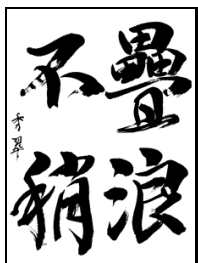 疊浪
不稍
秀翠